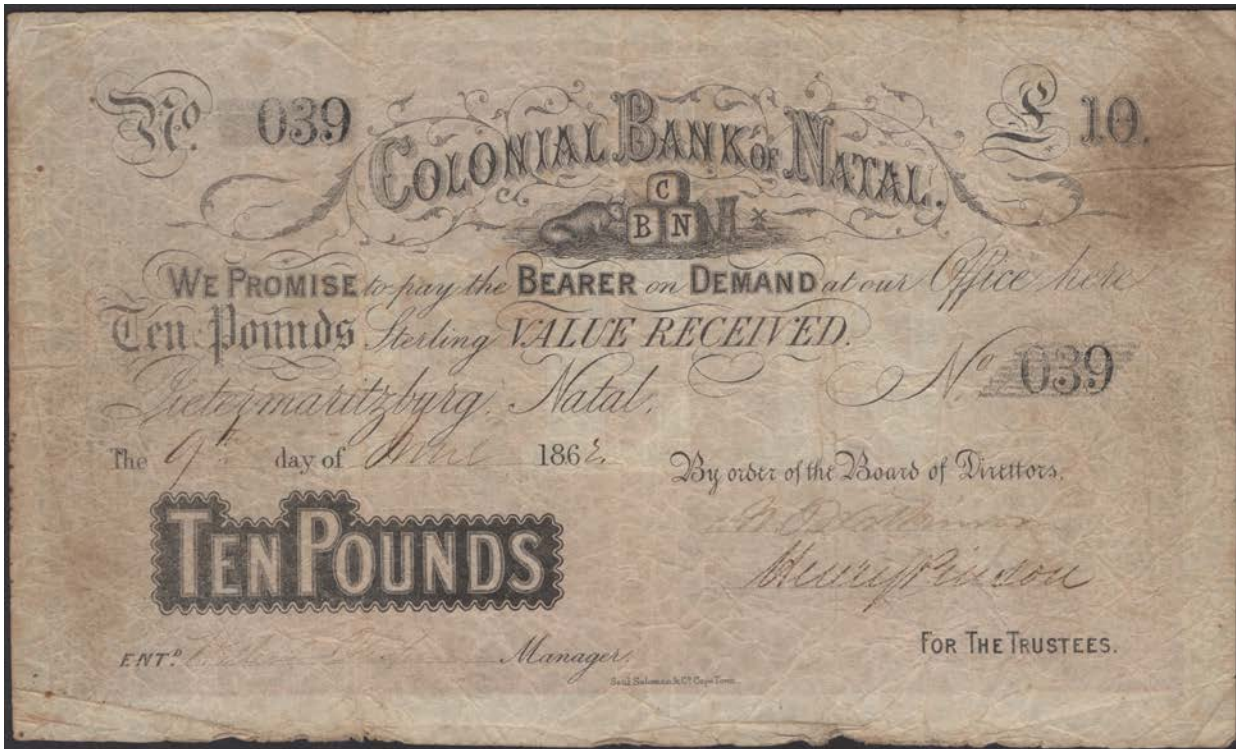 No. 039
£ 10.
COLONIAL BANK OF NATAL.
C
B N
WE PROMISE to pay the BEARER on DEMAND at our Office here
Ten Pounds Sterling VALUE RECEIVED.
No 039
Pietermaritzburg, Natal,
The 9th day of June 1862
By order of the Board of Directors,
TEN POUNDS
Henry Pinson
FOR THE TRUSTEES.
ENTD. Manager.
Saul Solomon & Co. Cape Town.